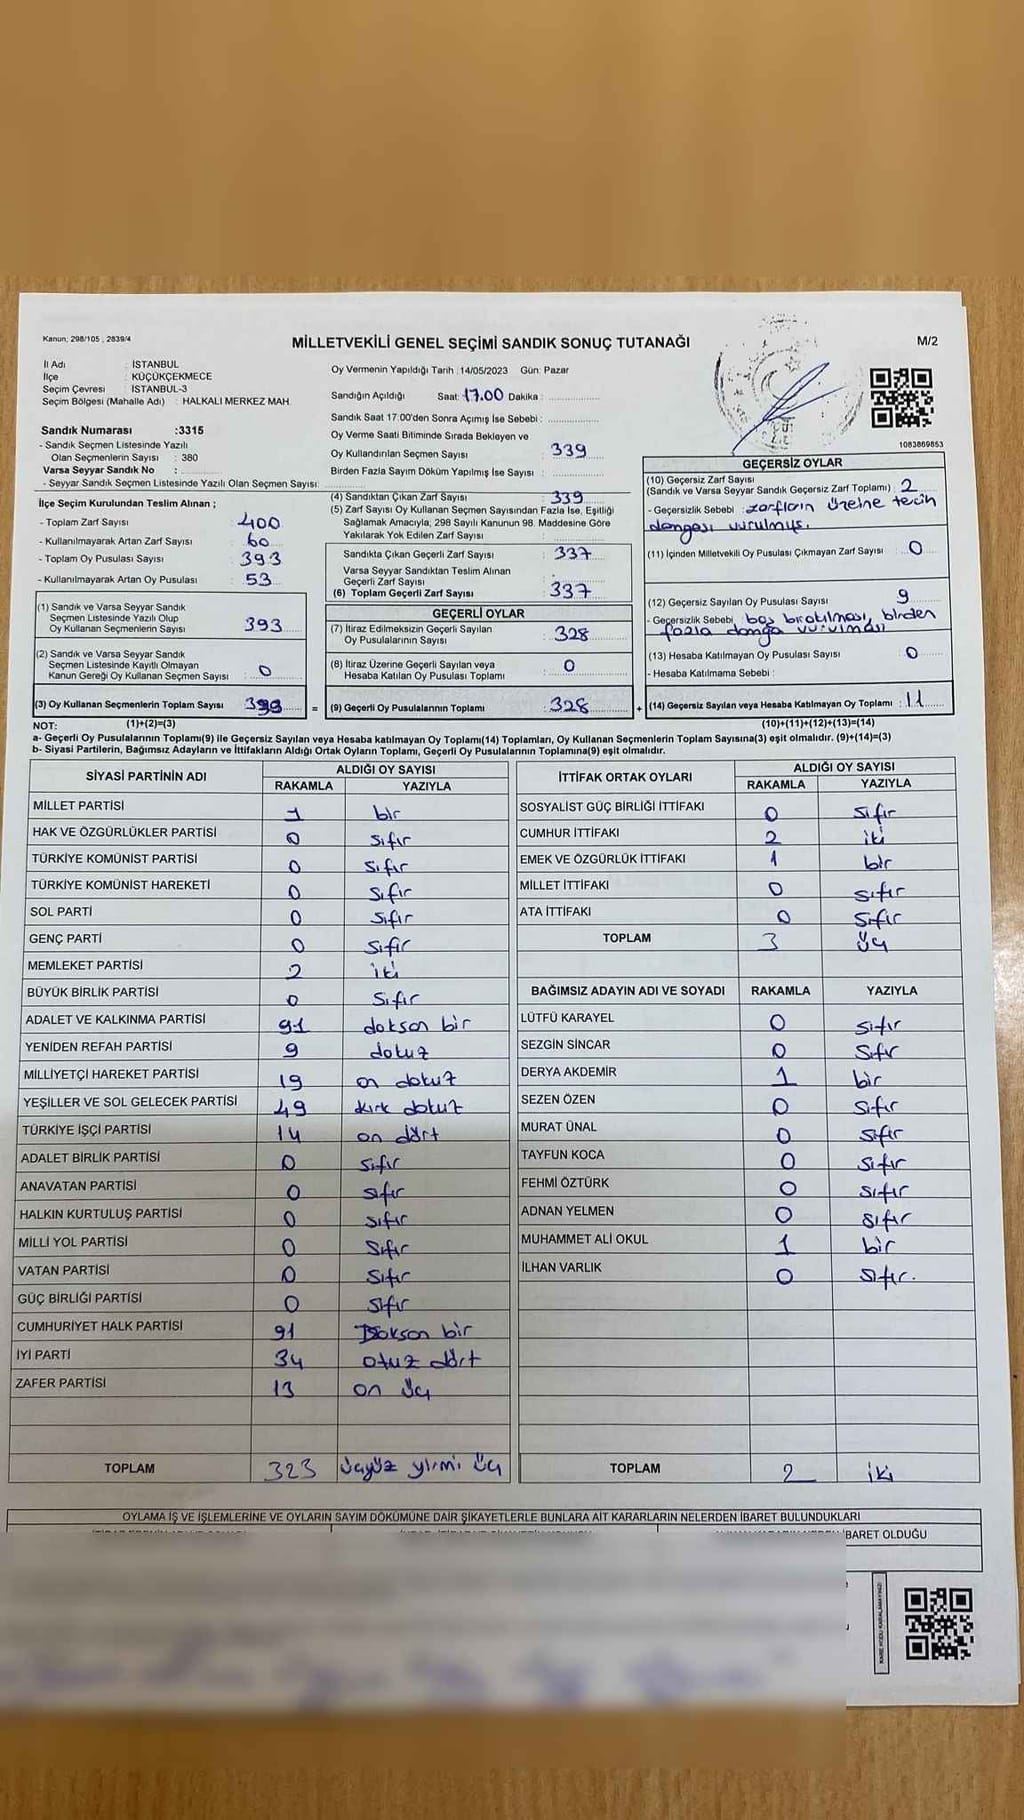 Kanun; 298/105 , 2839/4
MİLLETVEKİLİ GENEL SEÇİMİ SANDIK SONUÇ TUTANAĞI
M/2
İl Adı : İSTANBUL
İlçe : KÜÇÜKÇEKMECE
Seçim Çevresi : İSTANBUL-3
Seçim Bölgesi (Mahalle Adı) : HALKALI MERKEZ MAH.
Sandık Numarası :3315
- Sandık Seçmen Listesinde Yazılı
Olan Seçmenlerin Sayısı : 380
Varsa Seyyar Sandık No :
- Seyyar Sandık Seçmen Listesinde Yazılı Olan Seçmen Sayısı:
Oy Vermenin Yapıldığı Tarih :14/05/2023 Gün: Pazar
Sandığın Açıldığı Saat: 17.00 Dakika :
Sandık Saat 17:00'den Sonra Açımış İse Sebebi :
Oy Verme Saati Bitiminde Sırada Bekleyen ve
Oy Kullandırılan Seçmen Sayısı : 339
Birden Fazla Sayım Döküm Yapılmış İse Sayısı :
1083869853
İlçe Seçim Kurulundan Teslim Alınan ;
- Toplam Zarf Sayısı : 400
- Kullanılmayarak Artan Zarf Sayısı : 60
- Toplam Oy Pusulası Sayısı : 393
- Kullanılmayarak Artan Oy Pusulası : 53
(1) Sandık ve Varsa Seyyar Sandık
Seçmen Listesinde Yazılı Olup
Oy Kullanan Seçmenlerin Sayısı : 393
(2) Sandık ve Varsa Seyyar Sandık
Seçmen Listesinde Kayıtlı Olmayan
Kanun Gereği Oy Kullanan Seçmen Sayısı : 0
(3) Oy Kullanan Seçmenlerin Toplam Sayısı :
(4) Sandıktan Çıkan Zarf Sayısı : 339
(5) Zarf Sayısı Oy Kullanan Seçmen Sayısından Fazla İse, Eşitliği
Sağlamak Amacıyla; 298 Sayılı Kanunun 98. Maddesine Göre
Yakılarak Yok Edilen Zarf Sayısı :
Sandıkta Çıkan Geçerli Zarf Sayısı : 337
Varsa Seyyar Sandıktan Teslim Alınan
Geçerli Zarf Sayısı :
(6) Toplam Geçerli Zarf Sayısı : 337
GEÇERLİ OYLAR
(7) İtiraz Edilmeksizin Geçerli Sayılan
Oy Pusulalarının Sayısı : 328
(8) İtiraz Üzerine Geçerli Sayılan veya
Hesaba Katılan Oy Pusulası Toplamı : 0
= (9) Geçerli Oy Pusulalarının Toplamı : 328 +
GEÇERSİZ OYLAR
(10) Geçersiz Zarf Sayısı
(Sandık ve Varsa Seyyar Sandık Geçersiz Zarf Toplamı) : 2
- Geçersizlik Sebebi : zarfların üzeine tercih
damgası vurulmuş.
(11) İçinden Milletvekili Oy Pusulası Çıkmayan Zarf Sayısı : 0
(12) Geçersiz Sayılan Oy Pusulası Sayısı : 9
- Geçersizlik Sebebi : boş bırakılması, birden
fazla damga vurulması
(13) Hesaba Katılmayan Oy Pusulası Sayısı : 0
- Hesaba Katılmama Sebebi :
(14) Geçersiz Sayılan veya Hesaba Katılmayan Oy Toplamı : 11
NOT: (1)+(2)=(3) (10)+(11)+(12)+(13)=(14)
a- Geçerli Oy Pusulalarının Toplamı(9) ile Geçersiz Sayılan veya Hesaba katılmayan Oy Toplamı(14) Toplamları, Oy Kullanan Seçmenlerin Toplam Sayısına(3) eşit olmalıdır. (9)+(14)=(3)
b- Siyasi Partilerin, Bağımsız Adayların ve İttifakların Aldığı Ortak Oyların Toplamı, Geçerli Oy Pusulalarının Toplamına(9) eşit olmalıdır.
SİYASİ PARTİNİN ADI ALDIĞI OY SAYISI
RAKAMLA YAZIYLA
MİLLET PARTİSİ 1 bir
HAK VE ÖZGÜRLÜKLER PARTİSİ 0 sıfır
TÜRKİYE KOMÜNİST PARTİSİ 0 sıfır
TÜRKİYE KOMÜNİST HAREKETİ 0 sıfır
SOL PARTİ 0 sıfır
GENÇ PARTİ 0 sıfır
MEMLEKET PARTİSİ 2 iki
BÜYÜK BİRLİK PARTİSİ 0 sıfır
ADALET VE KALKINMA PARTİSİ 91 doksan bir
YENİDEN REFAH PARTİSİ 9 dokuz
MİLLİYETÇİ HAREKET PARTİSİ 19 on dokuz
YEŞİLLER VE SOL GELECEK PARTİSİ 49 kırk dokuz
TÜRKİYE İŞÇİ PARTİSİ 14 on dört
ADALET BİRLİK PARTİSİ 0 sıfır
ANAVATAN PARTİSİ 0 sıfır
HALKIN KURTULUŞ PARTİSİ 0 sıfır
MİLLİ YOL PARTİSİ 0 sıfır
VATAN PARTİSİ 0 sıfır
GÜÇ BİRLİĞİ PARTİSİ 0 sıfır
CUMHURİYET HALK PARTİSİ 91 Doksan bir
İYİ PARTİ 34 otuz dört
ZAFER PARTİSİ 13 on üç
TOPLAM 323 üçyüz yirmi üç
İTTİFAK ORTAK OYLARI ALDIĞI OY SAYISI
RAKAMLA YAZIYLA
SOSYALİST GÜÇ BİRLİĞİ İTTİFAKI 0 sıfır
CUMHUR İTTİFAKI 2 iki
EMEK VE ÖZGÜRLÜK İTTİFAKI 1 bir
MİLLET İTTİFAKI 0 sıfır
ATA İTTİFAKI 0 sıfır
TOPLAM 3 üç
BAĞIMSIZ ADAYIN ADI VE SOYADI RAKAMLA YAZIYLA
LÜTFÜ KARAYEL 0 sıfır
SEZGİN SİNCAR 0 sıfır
DERYA AKDEMİR 1 bir
SEZEN ÖZEN 0 sıfır
MURAT ÜNAL 0 sıfır
TAYFUN KOCA 0 sıfır
FEHMİ ÖZTÜRK 0 sıfır
ADNAN YELMEN 0 sıfır
MUHAMMET ALİ OKUL 1 bir
İLHAN VARLIK 0 sıfır.
TOPLAM 2 iki
OYLAMA İŞ VE İŞLEMLERİNE VE OYLARIN SAYIM DÖKÜMÜNE DAİR ŞİKAYETLERLE BUNLARA AİT KARARLARIN NELERDEN İBARET BULUNDUKLARI
İBARET OLDUĞU
KARE KODU KARALAMAYINIZ!